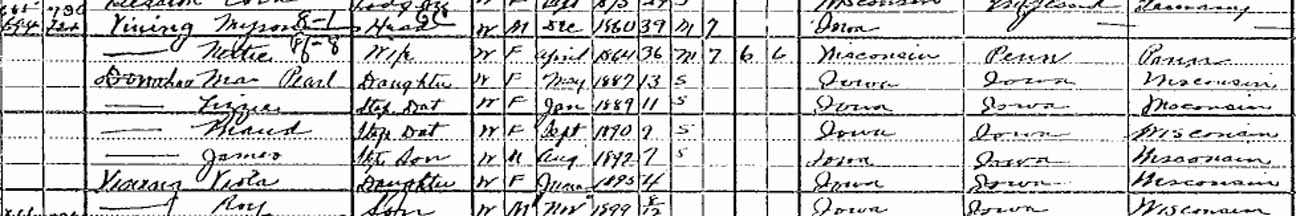 Wisconsin Germany
Vining Myron 8-1 Head W M Dec 1860 39 M 7 Iowa
— Nettie 8-8 Wife W F April 1864 36 M 7 6 6 Wisconsin Penn Penn
Donahoo Pearl Daughter W F May 1887 13 S Iowa Iowa Wisconsin
— Lizzie Step Dat W F Jan 1889 11 S Iowa Iowa Wisconsin
— Maud Step Dat W F Sept 1890 9 S Iowa Iowa Wisconsin
— James Ste Son W M Aug 1892 7 S Iowa Iowa Wisconsin
Vining Viola Daughter W F June 1895 4 Iowa Iowa Wisconsin
— Roy Son W M Nov 1899 8/12 Iowa Iowa Wisconsin